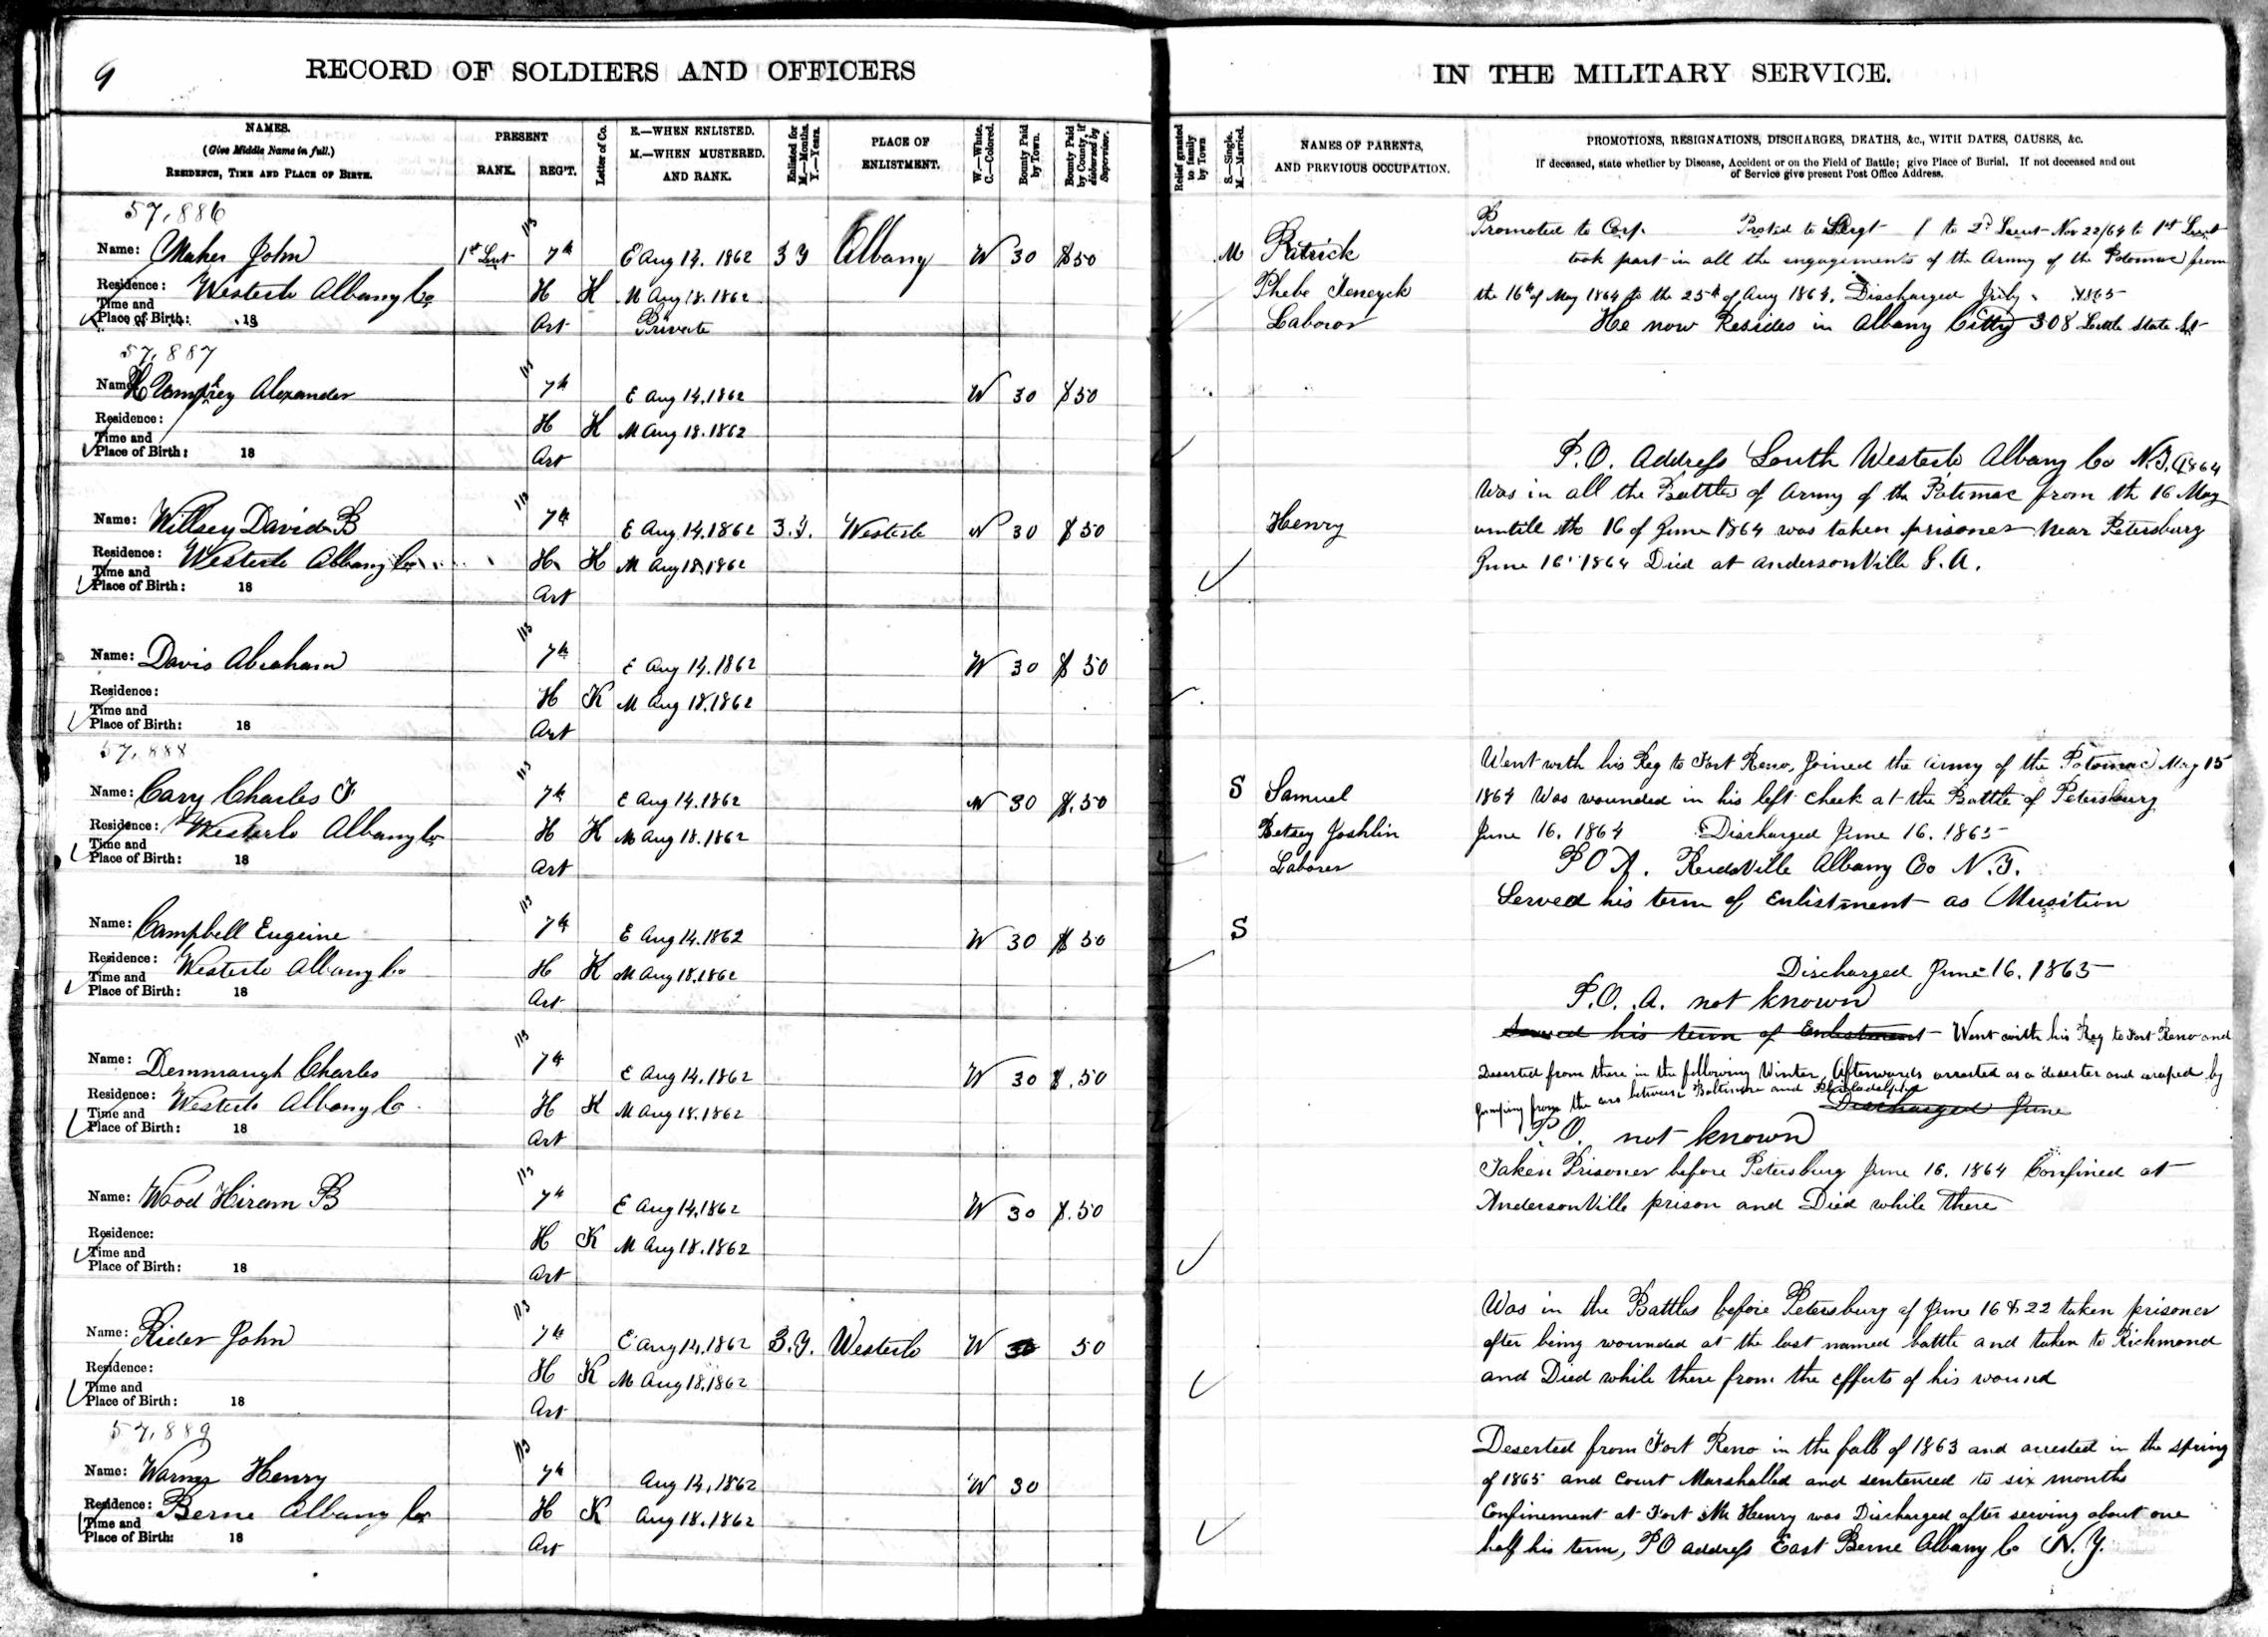 9
RECORD OF SOLDIERS AND OFFICERS
IN THE MILITARY SERVICE.
NAMES.
(Give Middle Name in full.)
RESIDENCE, TIME AND PLACE OF BIRTH.
PRESENT
RANK.
REG'T.
Letter of Co.
E.—WHEN ENLISTED.
M.—WHEN MUSTERED.
AND RANK.
Enlisted for
M.—Months.
Y.—Years.
PLACE OF
ENLISTMENT.
W.—White.
C.—Colored.
Bounty Paid
by Town.
Bounty Paid
by County, if
disbursed by
Supervisor.
Relief granted
to family
by Town
S.—Single.
M.—Married.
NAMES OF PARENTS,
AND PREVIOUS OCCUPATION.
PROMOTIONS, RESIGNATIONS, DISCHARGES, DEATHS, &c., WITH DATES, CAUSES, &c.
If deceased, state whether by Disease, Accident or on the Field of Battle; give Place of Burial. If not deceased and out
of Service give present Post Office Address.
57,886
113
Name: Maher John 1st Leut 7th E Aug 14. 1862 3 Y Albany W 30 $50
Residence: Westerlo Albany Co H K M Aug 18. 1862
Time and
Place of Birth: 18 Art Private
M Patrick
Phebe Teneyck
Laboror
Promoted to Corp. Promoted to Sergt to 2d Lieut Nov 22/64 to 1st Lieut
took part in all the engagements of the Army of the Potomac from
the 16th of May 1864 to the 25th of Aug 1864. Discharged July 1865
He now Resides in Albany Citty 308 State St
57,887
113
Name: Humphrey Alexander 7th E Aug 14. 1862 W 30 $50
Residence: H K M Aug 18. 1862
Time and
Place of Birth: 18 Art
P.O. Address South Westerlo Albany Co N.Y. 1864
113
Name: Willsey David B 7th E Aug 14. 1862 3.Y. Westerlo W 30 $50
Residence: Westerlo Albany Co H K M Aug 18. 1862
Time and
Place of Birth: 18 Art
Henry
Was in all the Battles of Army of the Potimac from th 16 May
untill the 16 of June 1864 was taken prisoner near Petersburg
June 16. 1864 Died at andersonVille G.A.
113
Name: Davis Abraham 7th E Aug 14. 1862 W 30 $50
Residence: H K M Aug 18. 1862
Time and
Place of Birth: 18 Art
57,888
113
Name: Cary Charles 7th E Aug 14. 1862 W 30 $.50
Residence: Westerlo Albany Co H K M Aug 18. 1862
Time and
Place of Birth: 18 Art
S Samuel
Betsey Joshlin
Laborer
Went with his Reg to Fort Reno, Joined the Army of the Potomac May 15
1864 Was wounded in his left cheek at the Battle of Petersburg
June 16. 1864 Discharged June 16. 1865
P O A. Reidsville Albany Co N.Y.
113
Name: Campbell Eugeine 7th E Aug 14. 1862 W 30 $50
Residence: Westerlo Albany Co H K M Aug 18. 1862
Time and
Place of Birth: 18 Art
S
Served his term of Enlistment as Musition
Discharged June 16. 1865
P.O. A. not known
113
Name: Demmaugh Charles 7th E Aug 14. 1862 W 30 $.50
Residence: Westerlo Albany Co H K M Aug 18. 1862
Time and
Place of Birth: 18 Art
Served his term of Enlistment Went with his Reg to Fort Reno and
Deserted from there in the following Winter, Afterwards arrested as a deserter and escaped by
jumping from the cars between Baltimore and Philadelphia
Discharged June
P.O. not known
113
Name: Wood Hiram B 7th E Aug 14. 1862 W 30 $.50
Residence: H K M Aug 18. 1862
Time and
Place of Birth: 18 Art
Taken Prisoner before Petersburg June 16. 1864 Confined at
AndersonVille prison and Died while there
113
Name: Rider John 7th E Aug 14. 1862 3.Y. Westerlo W 30 50
Residence: H K M Aug 18. 1862
Time and
Place of Birth: 18 Art
Was in the Battles before Petersburg of June 16 & 22 taken prisoner
after being wounded at the last named battle and taken to Richmond
and Died while there from the effects of his wound
57,889
113
Name: Warner Henry 7th Aug 14, 1862 W 30
Residence: Berne Albany Co H K Aug 18. 1862
Time and
Place of Birth: 18 Art
Deserted from Fort Reno in the fall of 1863 and arrested in the spring
of 1865 and Court Marshalled and sentenced to six months
Confinement at Fort Mc Henry was Discharged after serving about one
half his term, PO address East Berne Albany Co N.Y.